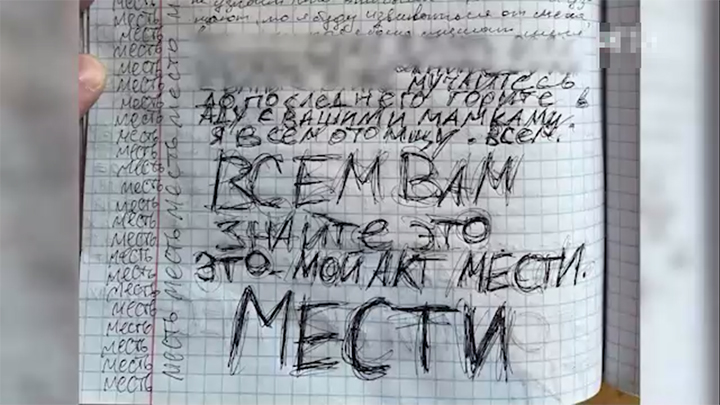 месть
месть
месть
месть
месть
месть
месть
месть
месть
месть
месть
месть
месть
месть
месть
месть
месть
месть
месть
месть
месть
месть
месть месть месть месть месть месть месть
но я буду
МУЧАЙТЕСЬ
ДО ПОСЛЕДНЕГО ГОРИТЕ В
АДУ С ВАШИМИ МАМКАМИ
Я ВСЕМ ОТОМЩУ. ВСЕМ.
ВСЕМ ВАМ
ЗНАЙТЕ ЭТО
ЭТО МОЙ АКТ МЕСТИ.
МЕСТИ